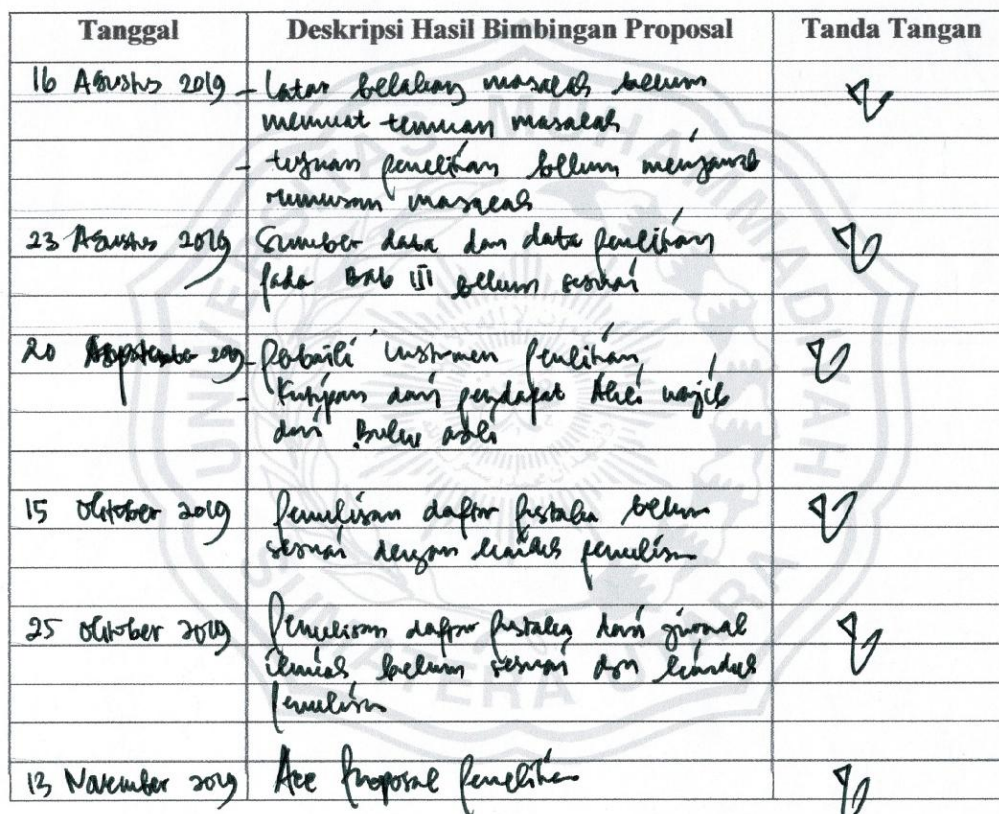 Tanggal Deskripsi Hasil Bimbingan Proposal Tanda Tangan
16 Agustus 2019 - Latar belakang masalah belum
memuat temuan masalah
- tujuan penelitian belum menjawab
rumusan masalah
23 Agustus 2019 Sumber data dan data penelitian
pada Bab III belum sesuai
20 September 2019 - Perbaiki Instrumen penelitian
- Kutipan dari pendapat Ahli wajib
dari Buku asli
15 Oktober 2019 Penulisan daftar pustaka belum
sesuai dengan kaidah penulisan
25 Oktober 2019 Penulisan daftar pustaka dari jurnal
ilmiah belum sesuai dgn kaidah
penulisan
13 November 2019 Acc Proposal penelitian
UNIVERSITAS MUHAMMADIYAH
SUMATERA UTARA